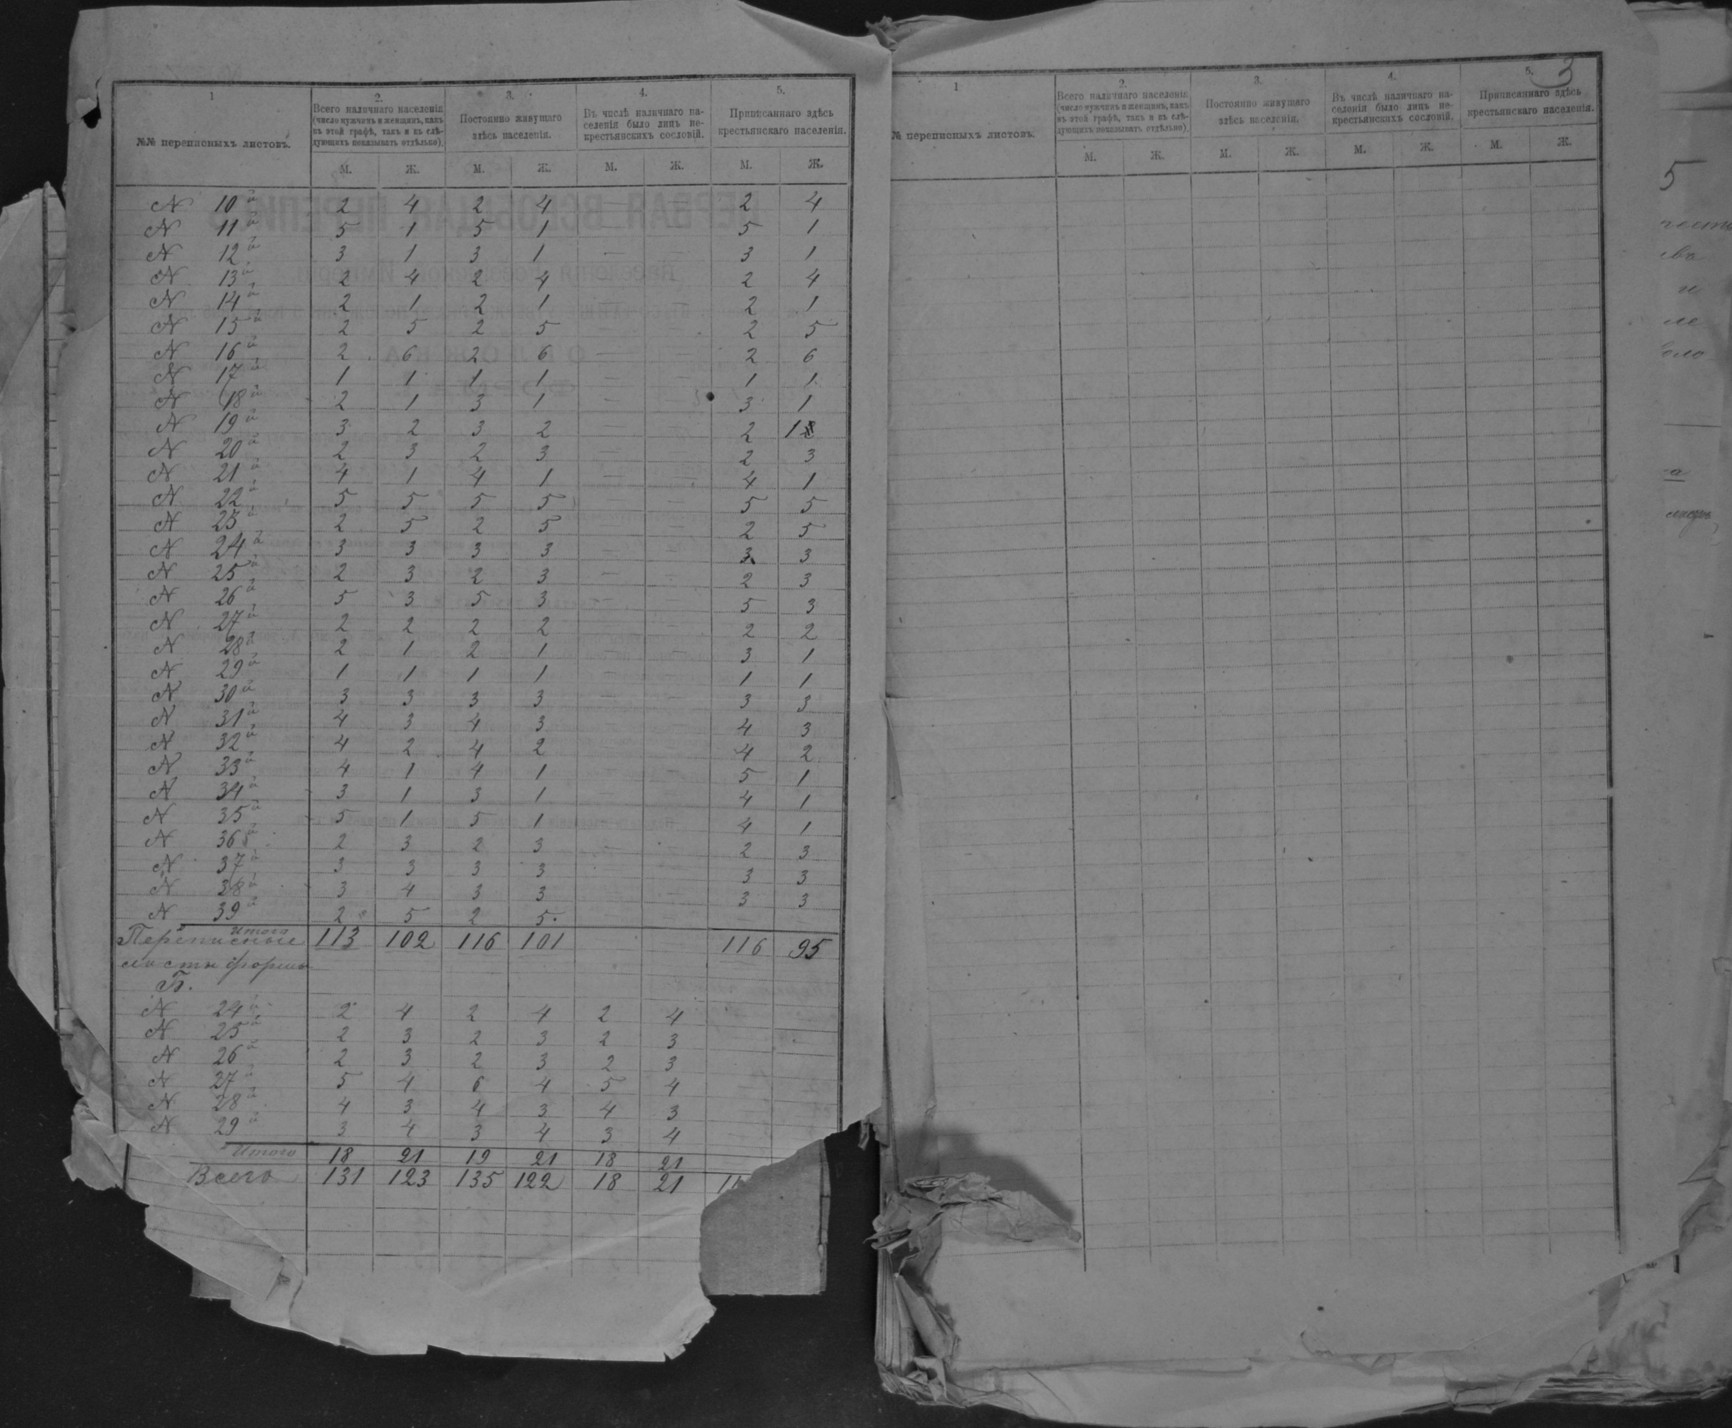 1
2.
3.
4.
5.
№№ переписныхъ листовъ.
Всего наличнаго населенія (число мужчинъ и женщинъ, какъ въ этой графѣ, такъ и въ слѣдующихъ показывать отдѣльно).
Постоянно живущаго здѣсь населенія.
Въ числѣ наличнаго населенія было лицъ некрестьянскихъ сословій.
Приписаннаго здѣсь крестьянскаго населенія.
М. Ж. М. Ж. М. Ж. М. Ж.
N 10й 2 4 2 4 — — 2 4
N 11й 5 1 5 1 — — 5 1
N 12й 3 1 3 1 — — 3 1
N 13й 2 4 2 4 — — 2 4
N 14й 2 1 2 1 — — 2 1
N 15й 2 5 2 5 — — 2 5
N 16й 2 6 2 6 — — 2 6
N 17й 1 1 1 1 — — 1 1
N 18й 2 1 3 1 — — 3 1
N 19й 3 2 3 2 — — 2 1
N 20й 2 3 2 3 — — 2 3
N 21й 4 1 4 1 — — 4 1
N 22й 5 5 5 5 — — 5 5
N 23й 2 5 2 5 — — 2 5
N 24й 3 3 3 3 — — 3 3
N 25й 2 3 2 3 — — 2 3
N 26й 5 3 5 3 — — 5 3
N 27й 2 2 2 2 — — 2 2
N 28й 2 1 2 1 — — 3 1
N 29й 1 1 1 1 — — 1 1
N 30й 3 3 3 3 — — 3 3
N 31й 4 3 4 3 — — 4 3
N 32й 4 2 4 2 — — 4 2
N 33й 4 1 4 1 — — 5 1
N 34й 3 1 3 1 — — 4 1
N 35й 5 1 5 1 — — 4 1
N 36й 2 3 2 3 — — 2 3
N 37й 3 3 3 3 — — 3 3
N 38й 3 4 3 3 — — 3 3
N 39й 2 5 2 5. — —
Итого 113 102 116 101 116 95
Переписные
листы формы
Б.
N 24й 2 4 2 4 2 4
N 25й 2 3 2 3 2 3
N 26й 2 3 2 3 2 3
N 27й 5 4 6 4 5 4
N 28й 4 3 4 3 4 3
N 29й 3 4 3 4 3 4
Итого 18 21 19 21 18 21
Всего 131 123 135 122 18 21
3
1
2.
3.
4.
5.
№ переписныхъ листовъ.
Всего наличнаго населенія (число мужчинъ и женщинъ, какъ въ этой графѣ, такъ и въ слѣдующихъ показывать отдѣльно).
Постоянно живущаго здѣсь населенія.
Въ числѣ наличнаго населенія было лицъ некрестьянскихъ сословій.
Приписаннаго здѣсь крестьянскаго населенія.
М. Ж. М. Ж. М. Ж. М. Ж.
5